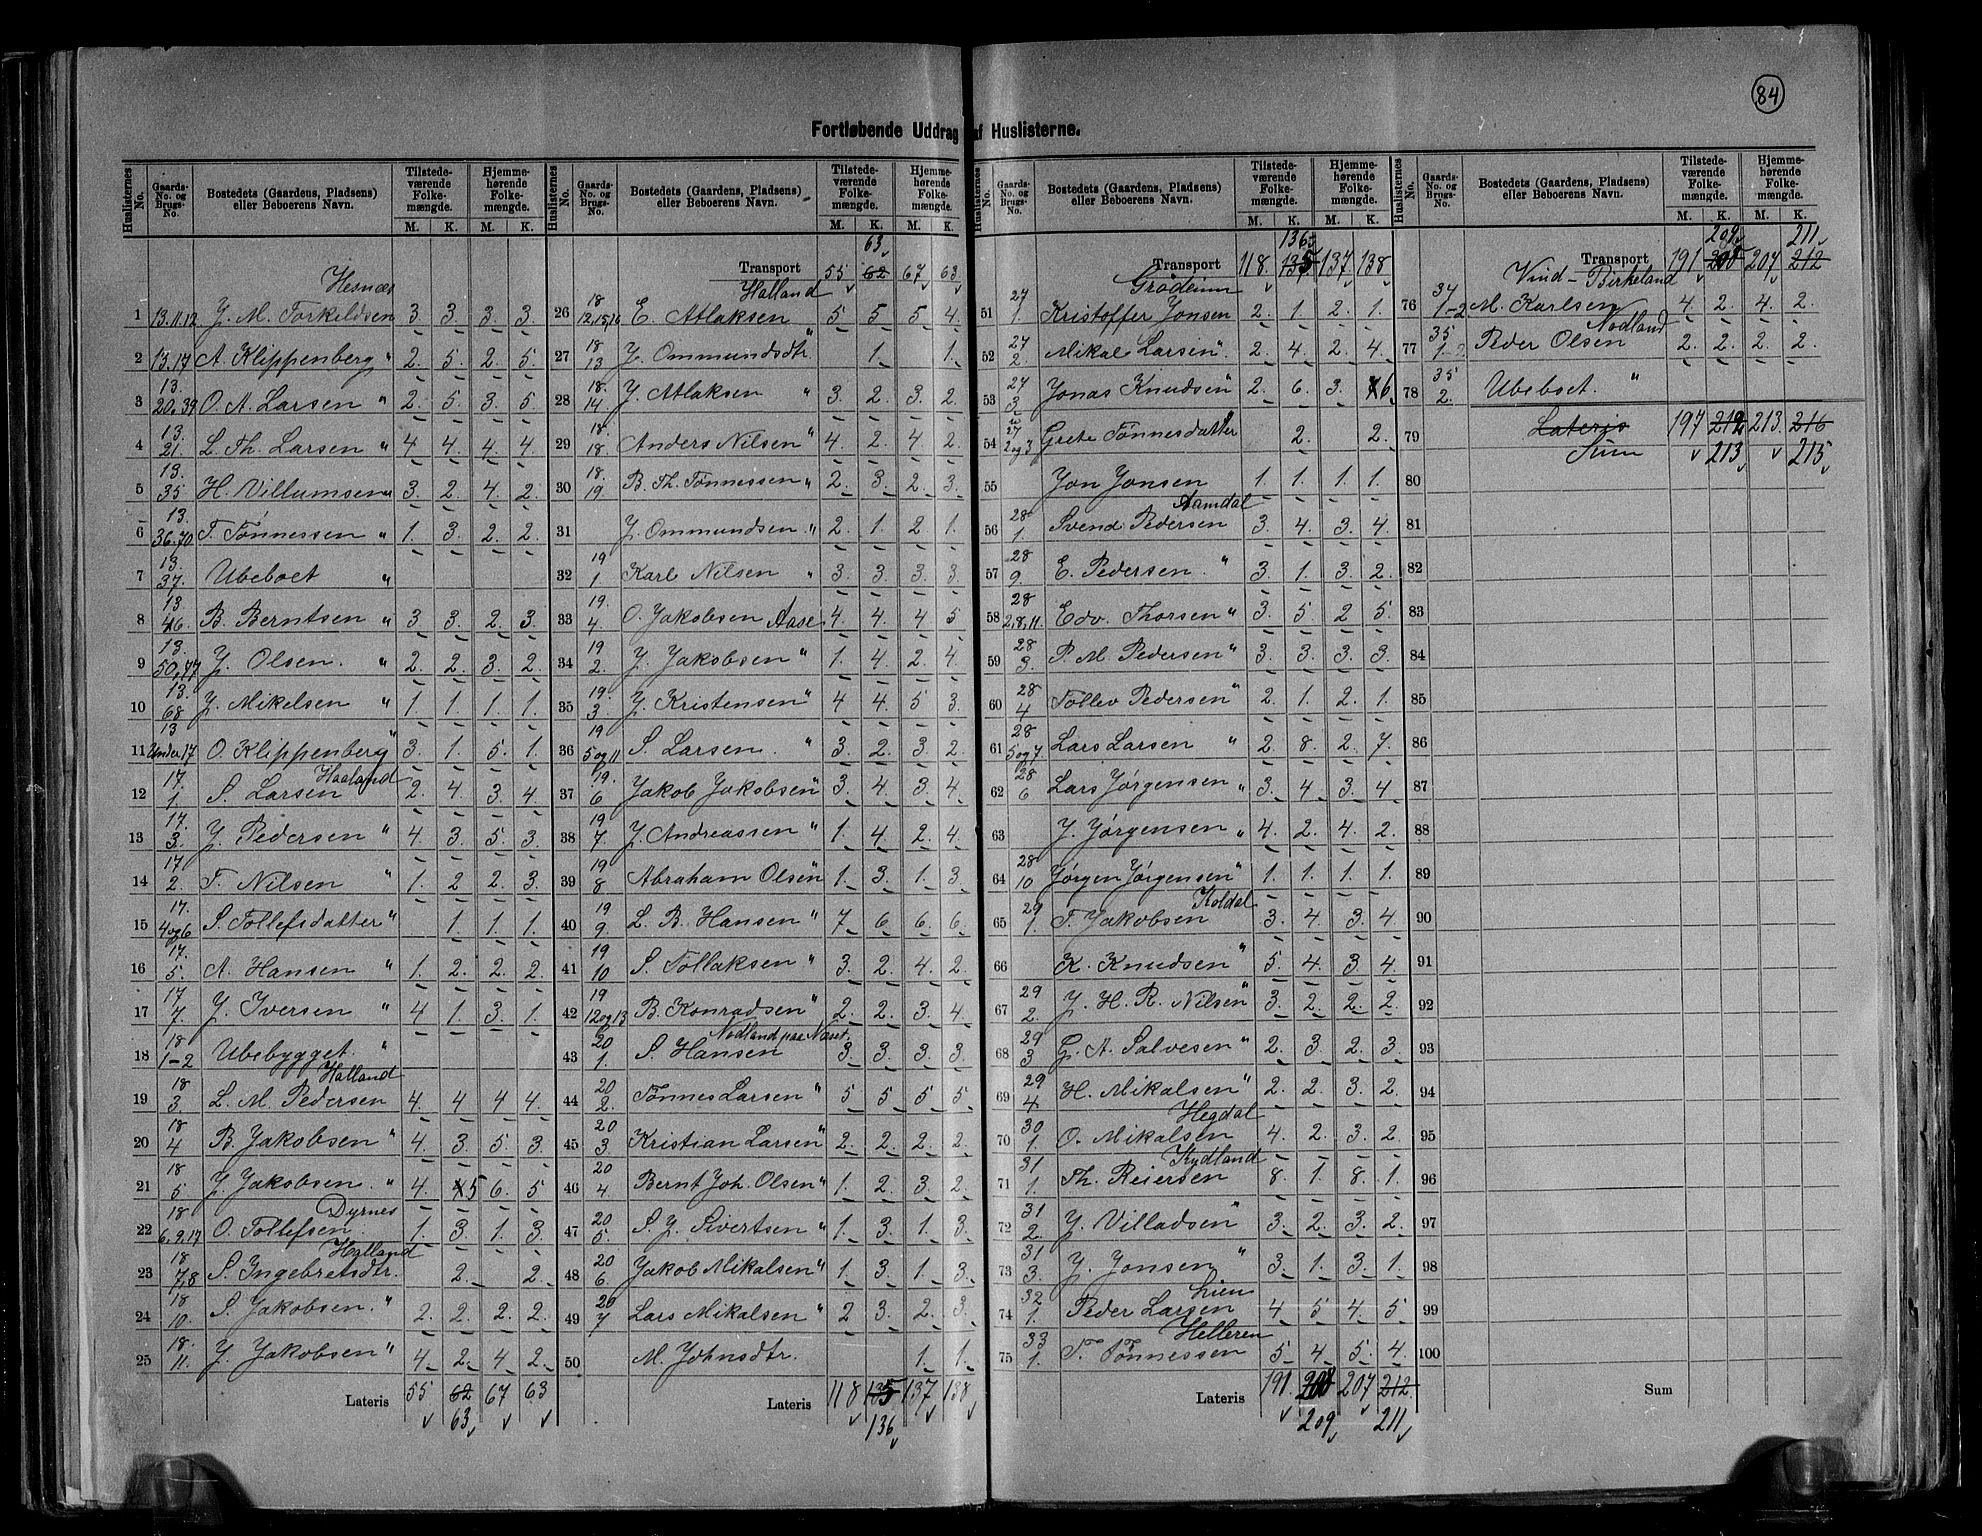 84
Fortløbende Uddrag af Huslisterne.
Huslisternes No. Gaards-No. og Brugs-No. Bostedets (Gaardens, Pladsens) eller Beboerens Navn. Tilstedeværende Folkemængde. M. K. Hjemmehørende Folkemængde. M. K.
Hesnæs
1 13.11.12 J. M. Torkildsen 3. 3. 3. 3.
2 13.17 A. Klippenberg " 2. 5. 2. 5.
3 13. 20.39 O. A. Larsen " 2. 5. 3. 5.
4 13. 21. L. Th. Larsen " 4. 4. 4. 4.
5 13. 35 H. Villumsen " 3. 2. 4. 2.
6 13. 36.70 T. Tønnessen " 1. 3. 2. 2.
7 13. 37. Ubeboet "
8 13 46. B. Berntsen " 3. 3. 2. 3.
9 13. 50,77 J. Olsen. " 2. 2. 3. 2.
10 13. 68 J. Mikelsen " 1. 1. 1. 1.
11 13 Under 17 O. Klippenberg " 3. 1. 5. 1.
Haaland
12 17. 1 S. Larsen 2. 4. 3. 4
13 17. 3. J. Pedersen " 4. 3. 5. 3.
14 17 2. T. Nilsen " 1. 2 2. 3.
15 17. 4og6 S. Tollefsdatter " 1. 1. 1.
16 17. 5. A. Hansen " 1. 2. 2. 2.
17 17 7. J. Iversen " 4 1. 3. 1.
18 18 1-2 Ubebygget. "
Halland
19 18 3. L. M. Pedersen 4. 4 4 4.
20 18 4 B. Jakobsen " 4. 3. 5. 3.
21 18 5 J. Jakobsen. " 4. 5 6. 5
Dyrnes
22 18 6.9.17 O. Tollefsen 1. 3. 1. 3.
Halland
23 18 7,8 S. Ingebretsdtr. 2. 2.
24 18 10. S. Jakobsen. " 2. 2. 2. 2.
25 18. 11. J. Jakobsen " 4. 2. 4 2.
Lateris 55 62 67 63
63
Huslisternes No. Gaards-No. og Brugs-No. Bostedets (Gaardens, Pladsens) eller Beboerens Navn. Tilstedeværende Folkemængde. M. K. Hjemmehørende Folkemængde. M. K.
63
Transport 55 62 67 63
Halland
26 18 12,15,16 E. Atlaksen 5 5 5. 4.
27 18 13 J. Ommundsdtr. 1. 1.
28 18. 14 J. Atlaksen " 3. 2. 3. 2
29 18. 18 Anders Nilsen " 4. 2 4 2.
30 18. 19 B. Th. Tønnessen " 2. 3. 2. 3.
31 J. Ommundsen. " 2. 1. 2 1.
32 19 1. Karl Nilsen " 3. 3. 3. 3.
33 19. 4 O. Jakobsen Aase 4. 4. 4 5
34 19 2. J. Jakobsen " 1. 4. 2. 4.
35 19. 3 J. Kristensen " 4 4. 5 3.
36 19 5og11 S. Larsen. " 3. 2. 3. 2.
37 19. 6 Jakob Jakobsen " 3. 4. 3. 4.
38 19 7. J. Andreassen " 1. 4. 2. 4.
39 19 8 Abraham Olsen " 1. 3. 1. 3
40 19 9. L. B. Hansen " 7 6. 6. 6.
41 19 10 S. Tollaksen " 3. 2. 4. 2.
42 19 12og13 B. Konradsen " 2. 2. 3. 4.
Nodland paa Næset.
43 20 1. S. Hansen 3. 3. 3. 3.
44 20 2. Tønnes Larsen " 5 5. 5. 5
45 20 3 Kristian Larsen " 2. 2. 2. 2.
46 20 4 Bernt Joh. Olsen " 1. 2. 3. 2.
47 20 5. S. J. Sivertsen " 1. 3. 1. 3.
48 20 6 Jakob Mikalsen " 1 3. 1. 3.
49 20 7 Lars Mikalsen " 2 3. 2. 3.
50 M. Johnsdtr. 1. 1.
Lateris 118 135 137 138
136
Huslisternes No. Gaards-No. og Brugs-No. Bostedets (Gaardens, Pladsens) eller Beboerens Navn. Tilstedeværende Folkemængde. M. K. Hjemmehørende Folkemængde. M. K.
136
Transport 118. 135 137. 138.
Grødeim
51 27 1. Kristoffer Jonsen 2. 1. 2. 1.
52 27 2 Mikal Larsen " 2. 4. 2. 4.
53 27 3 Jonas Knudsen " 2. 6. 3. 6
54 27 2og3 Grete Tønnesdatter 2. 2.
55 Jon Jonsen 1. 1. 1. 1.
Aamdal
56 28 1. Svend Pedersen 3. 4. 3. 4.
57 28 9. E. Pedersen. " 3. 1. 3. 2.
58 28 2,8,11. Edv. Thorsen " 3. 5 2 5.
59 28 3. P. M. Pedersen " 3. 3. 3. 3.
60 28 4 Tollev Pedersen " 2. 1. 2. 1.
61 28 5og7 Lars Larsen " 2. 8. 2. 7.
62 28 6 Lars Jørgensen " 3. 4 3. 4
63 J. Jørgensen " 4. 2. 4. 2.
64 28 10 Jørgen Jørgensen " 1. 1. 1. 1.
Koldal
65 29 1. T. Jakobsen 3. 4. 3. 4
66 K. Knudsen " 5. 4. 3. 4.
67 29 2. J. H. R. Nilsen " 3. 2. 2. 2.
68 29 3 G. A. Salvesen " 2. 3. 2. 3.
69 29 4 H. Mikalsen " 2. 2. 3. 2.
Hegdal
70 30 1. O. Mikalsen 4. 2. 3. 2.
Kydland
71 31 1. Th. Reiersen 8. 1. 8. 1.
72 31 2. J. Villadsen " 3. 2. 3. 2.
73 31 3. J. Jonsen " 3. 1. 3. 1.
Lien
74 32 1. Peder Larsen 4 5 4. 5
Helleren
75 33 1. T. Tønnessen 5. 4. 5. 4.
Lateris 191. 207 212.
209 211
Huslisternes No. Gaards-No. og Brugs-No. Bostedets (Gaardens, Pladsens) eller Beboerens Navn. Tilstedeværende Folkemængde. M. K. Hjemmehørende Folkemængde. M. K.
209 211
Transport 191 207 212
Vind-Birkeland
76 34 1-2 M. Karlsen 4. 2. 4. 2.
Nodland
77 35 1- Peder Olsen 2. 2. 2. 2.
78 35 2. Ubeboet. "
79 Lateris 197 212 213. 216
Sum 213 215
80
81
82
83
84
85
86
87
88
89
90
91
92
93
94
95
96
97
98
99
100
Sum